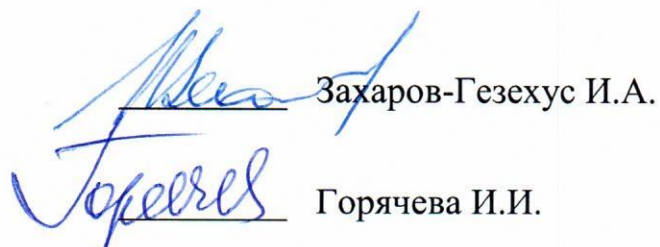 Захаров-Гезехус И.А.
Горячева И.И.